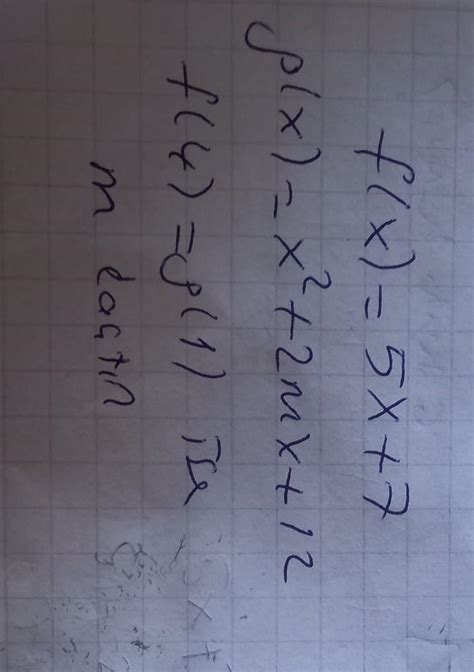 f(x) = 5x+7
p(x) = x²+2mx+12
f(4) = p(1) ise
m kaçtır